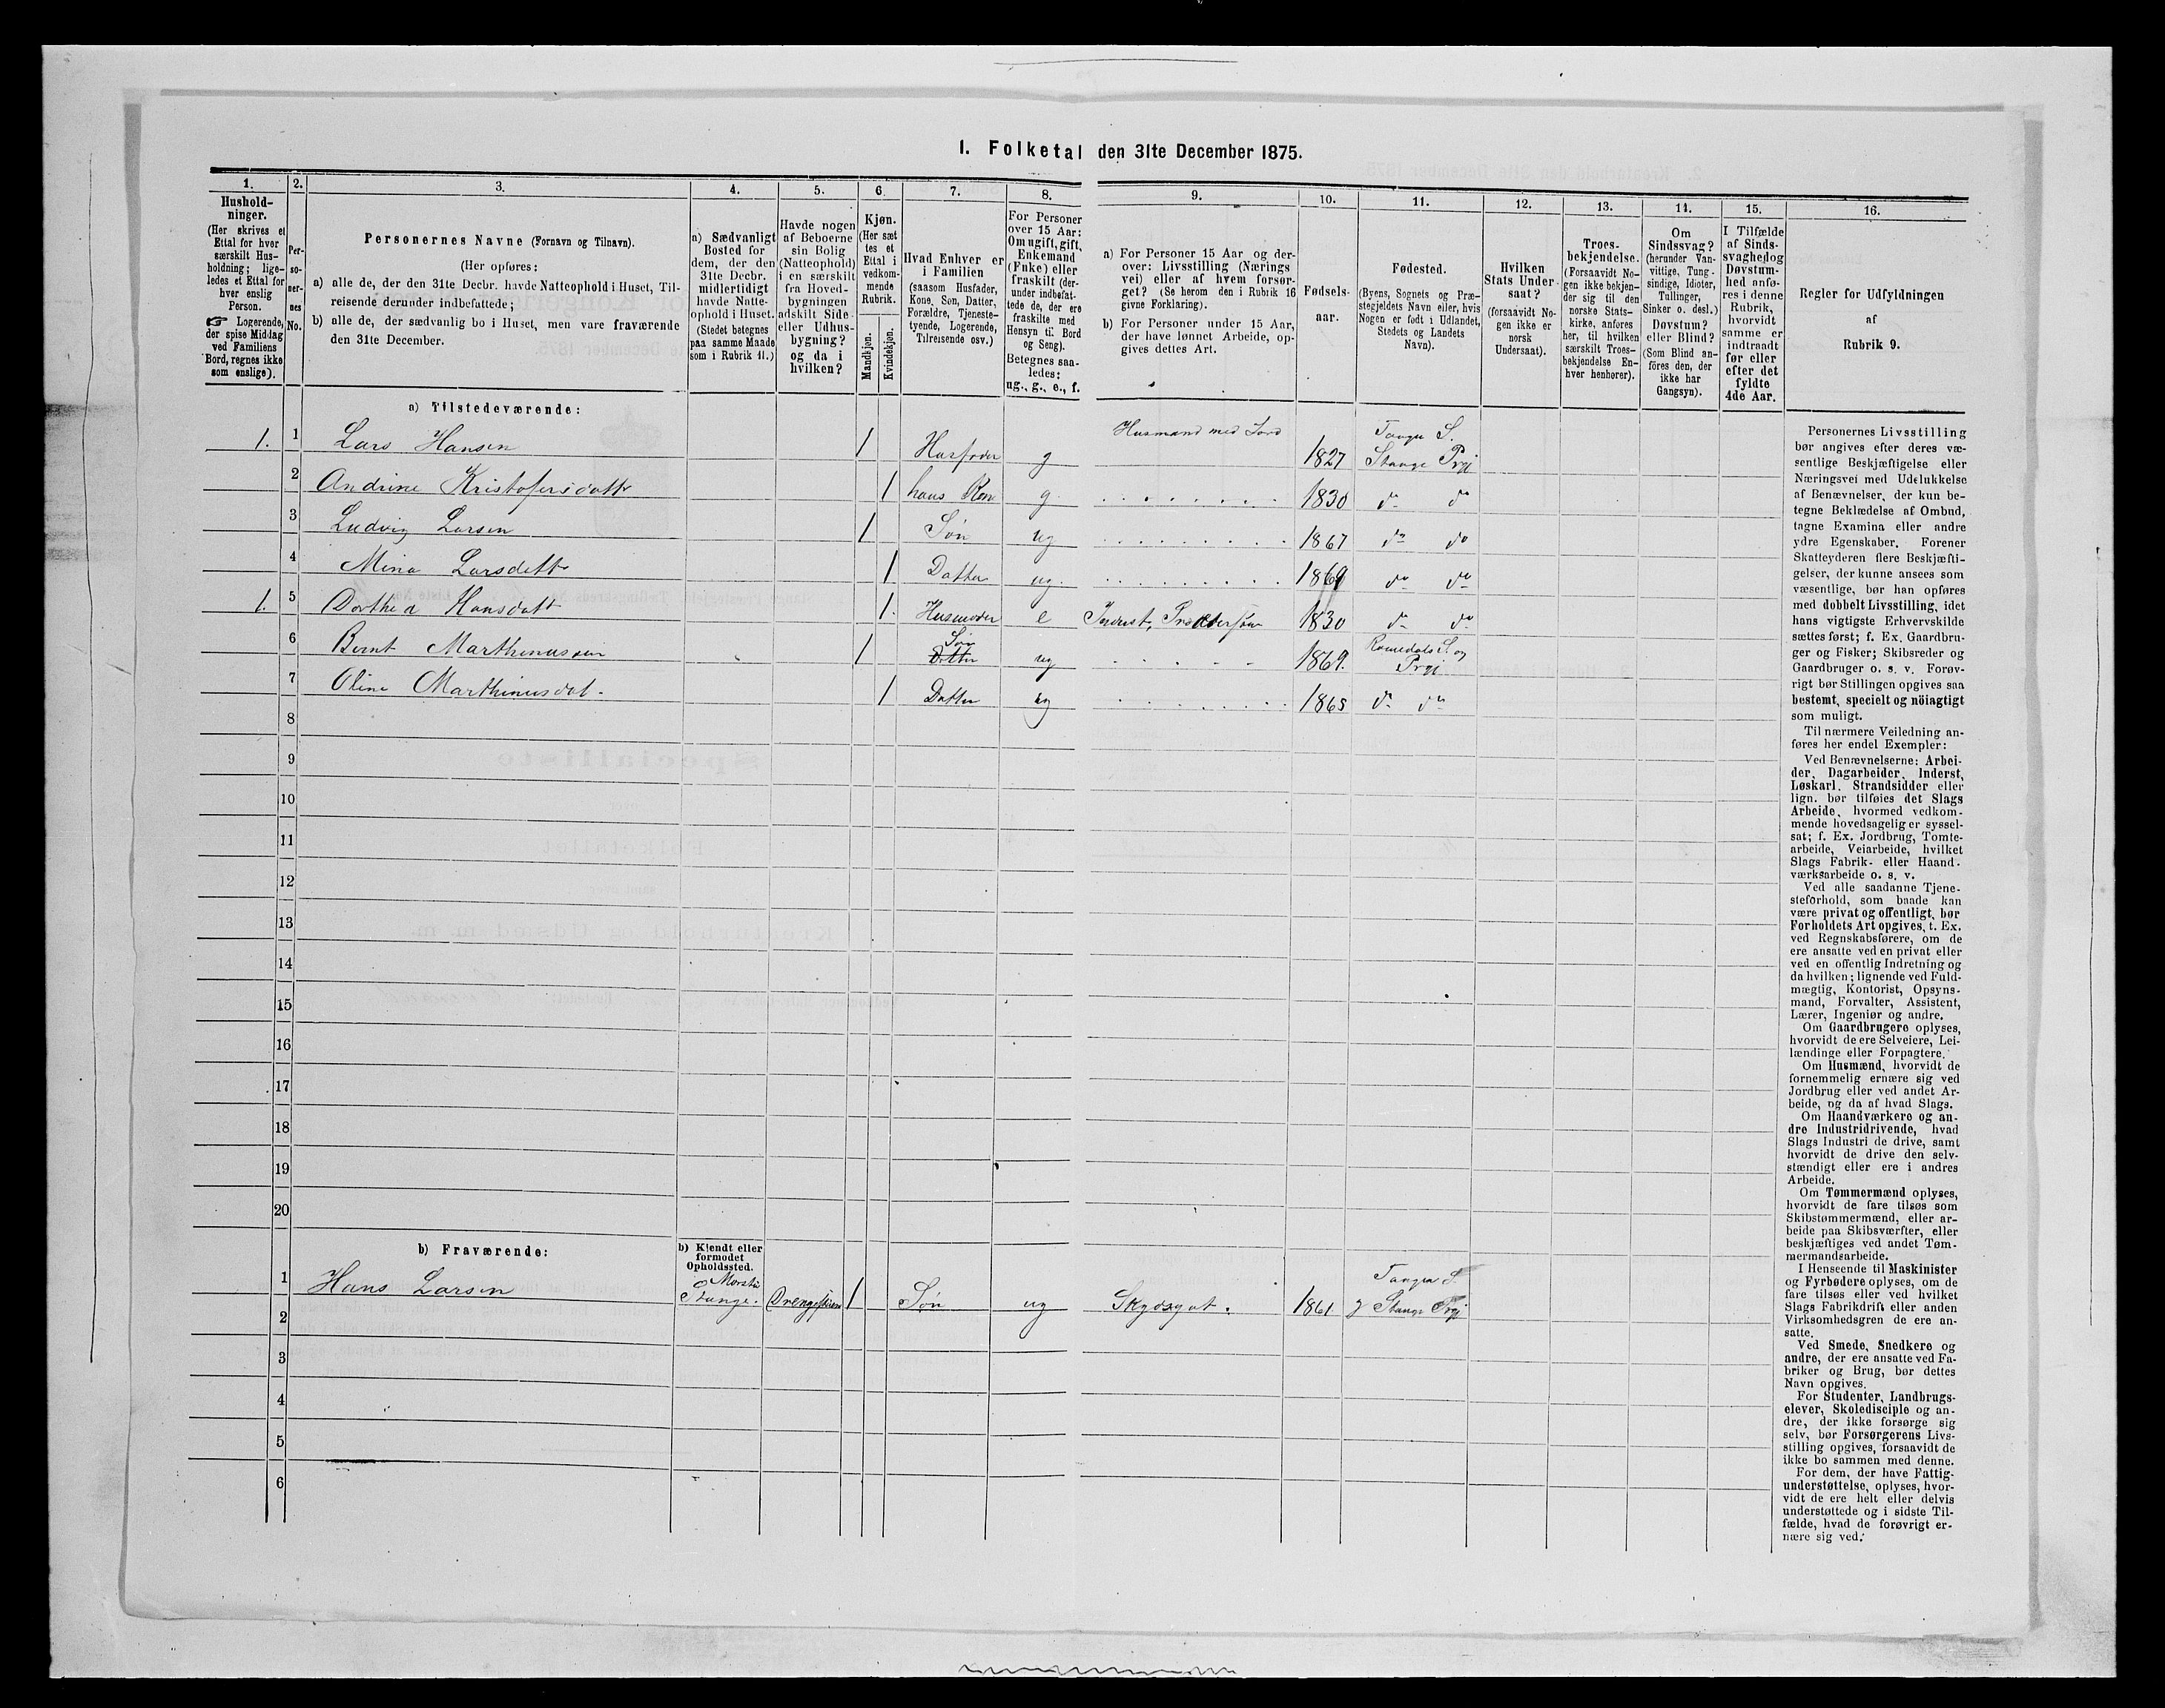 1. Folketal den 31te December 1875.
1.
Hushold-
ninger.
(Her skrives et
Ettal for hver
særskilt Hus-
holdning; lige-
ledes et Ettal for
hver enslig
Person.
☞ Logerende,
der spise Middag
ved Familiens
Bord, regnes ikke
som enslige).
2.
Per-
so-
ner-
nes
No.
3.
Personernes Navne (Fornavn og Tilnavn).
(Her opføres:
a) alle de, der den 31te Decbr. havde Natteophold i Huset, Til-
reisende derunder indbefattede;
b) alle de, der sædvanlig bo i Huset, men vare fraværende
den 31te December.
4.
a) Sædvanligt
Bosted for
dem, der den
31te Decbr.
midlertidigt
havde Natte-
ophold i Huset.
(Stedet betegnes
paa samme Maade
som i Rubrik 11.)
5.
Havde nogen
af Beboerne
sin Bolig
(Natteophold)
i en særskilt
fra Hoved-
bygningen
adskilt Side-
eller Udhus-
bygning?
og da i
hvilken?
6.
Kjøn.
(Her sæt
tes et
Ettal i
vedkom-
mende
Rubrik.
Mandkjøn.
Kvindekjøn.
7.
Hvad Enhver er
i Familien
(saasom Husfader,
Kone, Søn, Datter,
Forældre, Tjeneste-
tyende, Logerende,
Tilreisende osv.)
8.
For Personer
over 15 Aar:
Om ugift, gift,
Enkemand
(Enke) eller
fraskilt (der-
under indbefat-
tede de, der ere
fraskilte med
Hensyn til Bord
og Seng).
Betegnes saa-
ledes:
ug., g., e., f.
9.
a) For Personer 15 Aar og der-
over: Livsstilling (Nærings
vei) eller af hvem forsør-
get? (Se herom den i Rubrik 16
givne Forklaring).
b) For Personer under 15 Aar,
der have lønnet Arbeide, op-
gives dettes Art.
10.
Fødsels-
aar.
11.
Fødested.
(Byens, Sognets og Præ-
stegjeldets Navn eller, hvis
Nogen er født i Udlandet,
Stedets og Landets
Navn).
12.
Hvilken
Stats Under-
saat?
(forsaavidt No-
gen ikke er
norsk
Undersaat).
13.
Troes-
bekjendelse.
(Forsaavidt No-
gen ikke bekjen-
der sig til den
norske Stats-
kirke, anføres
her, til hvilken
særskilt Troes-
bekjendelse En-
hver henhører).
14.
Om
Sindssvag?
(herunder Van-
vittige, Tung-
sindige, Idioter,
Tullinger,
Sinker o. desl.)
Døvstum?
eller Blind?
(Som Blind an-
føres den, der
ikke har
Gangsyn).
15.
I Tilfælde
af Sinds-
svaghed og
Døvstum-
hed anfø-
res i denne
Rubrik,
hvorvidt
samme er
indtraadt
før eller
efter det
fyldte
4de Aar.
16.
Regler for Udfyldningen
af
Rubrik 9.
a) Tilstedeværende:
1. 1 Lars Hansen 1 Husfader g Husmand med Jord 1827 Tangen S. Stange Prgj
2 Andrine Kristofersdattr 1 hans Kon g 1830 do do
3 Ludvig Larsen 1 Søn ug 1867 do do
4 Mina Larsdattr 1 Datter ug. 1869 do do
1. 5 Dorthea Hansdatt 1. Husmoder e Inderst, 1830 do do
6 Bernt Marthinussen 1 Søn Datter ug 1869. Romedals S. og Prgj
7 Oline Marthinusdat. 1 Datter ug 1865 do do
8
9
10
11
12
13
14
15
16
17
18
19
20
b) Fraværende:
b) Kjendt eller
formodet
Opholdssted.
1 Hans Larsen Stange. 1 Søn ug Skydsgut. 1861 Tangen S. Stange Prgj
2
3
4
5
6
Personernes Livsstilling
bør angives efter deres væ-
sentlige Beskjæftigelse eller
Næringsvei med Udelukkelse
af Benævnelser, der kun be-
tegne Beklædelse af Ombud,
tagne Examina eller andre
ydre Egenskaber. Forener
Skatteyderen flere Beskjæfti-
gelser, der kunne ansees som
væsentlige, bør han opføres
med dobbelt Livsstilling, idet
hans vigtigste Erhvervskilde
sættes først; f. Ex. Gaardbru-
ger og Fisker; Skibsreder og
Gaardbruger o. s. v. Forøv-
rigt bør Stillingen opgives saa
bestemt, specielt og nöiagtigt
som muligt.
Til nærmere Veiledning an-
føres her endel Exempler:
Ved Benævnelserne: Arbei-
der, Dagarbeider, Inderst,
Løskarl, Strandsidder eller
lign. bør tilføies det Slags
Arbeide, hvormed vedkom-
mende hovedsagelig er syssel-
sat; f. Ex. Jordbrug, Tomte-
arbeide, Veiarbeide, hvilket
Slags Fabrik- eller Haand-
værksarbeide o. s. v.
Ved alle saadanne Tjene-
steforhold, som baade kan
være privat og offentligt, bør
Forholdets Art opgives, f. Ex.
ved Regnskabsførere, om de
ere ansatte ved en privat eller
ved en offentlig Indretning og
da hvilken; lignende ved Fuld-
mægtig, Kontorist, Opsyns-
mand, Forvalter, Assistent,
Lærer, Ingeniør og andre.
Om Gaardbrugere oplyses,
hvorvidt de ere Selveiere, Lei-
lændinge eller Forpagtere.
Om Husmænd, hvorvidt de
fornemmelig ernære sig ved
Jordbrug eller ved andet Ar-
beide, og da af hvad Slags.
Om Haandværkere og an-
dre Industridrivende, hvad
Slags Industri de drive, samt
hvorvidt de drive den selv-
stændigt eller ere i andres
Arbeide.
Om Tømmermænd oplyses,
hvorvidt de fare tilsøs som
Skibstømmermænd, eller ar-
beide paa Skibsværfter, eller
beskjæftiges ved andet Tøm-
mermandsarbeide.
I Henseende til Maskinister
og Fyrbødere oplyses, om de
fare tilsøs eller ved hvilket
Slags Fabrikdrift eller anden
Virksomhedsgren de ere an-
satte.
Ved Smede, Snedkere og
andre, der ere ansatte ved Fa-
briker og Brug, bør dettes
Navn opgives.
For Studenter, Landbrugs-
elever, Skoledisciple og an-
dre, der ikke forsørge sig
selv, bør Forsørgerens Livs-
stilling opgives, forsaavidt de
ikke bo sammen med denne.
For dem, der have Fattig-
understøttelse, oplyses, hvor-
vidt de ere helt eller delvis
understøttede og i sidste Til-
fælde, hvad de forøvrigt er-
nære sig ved.